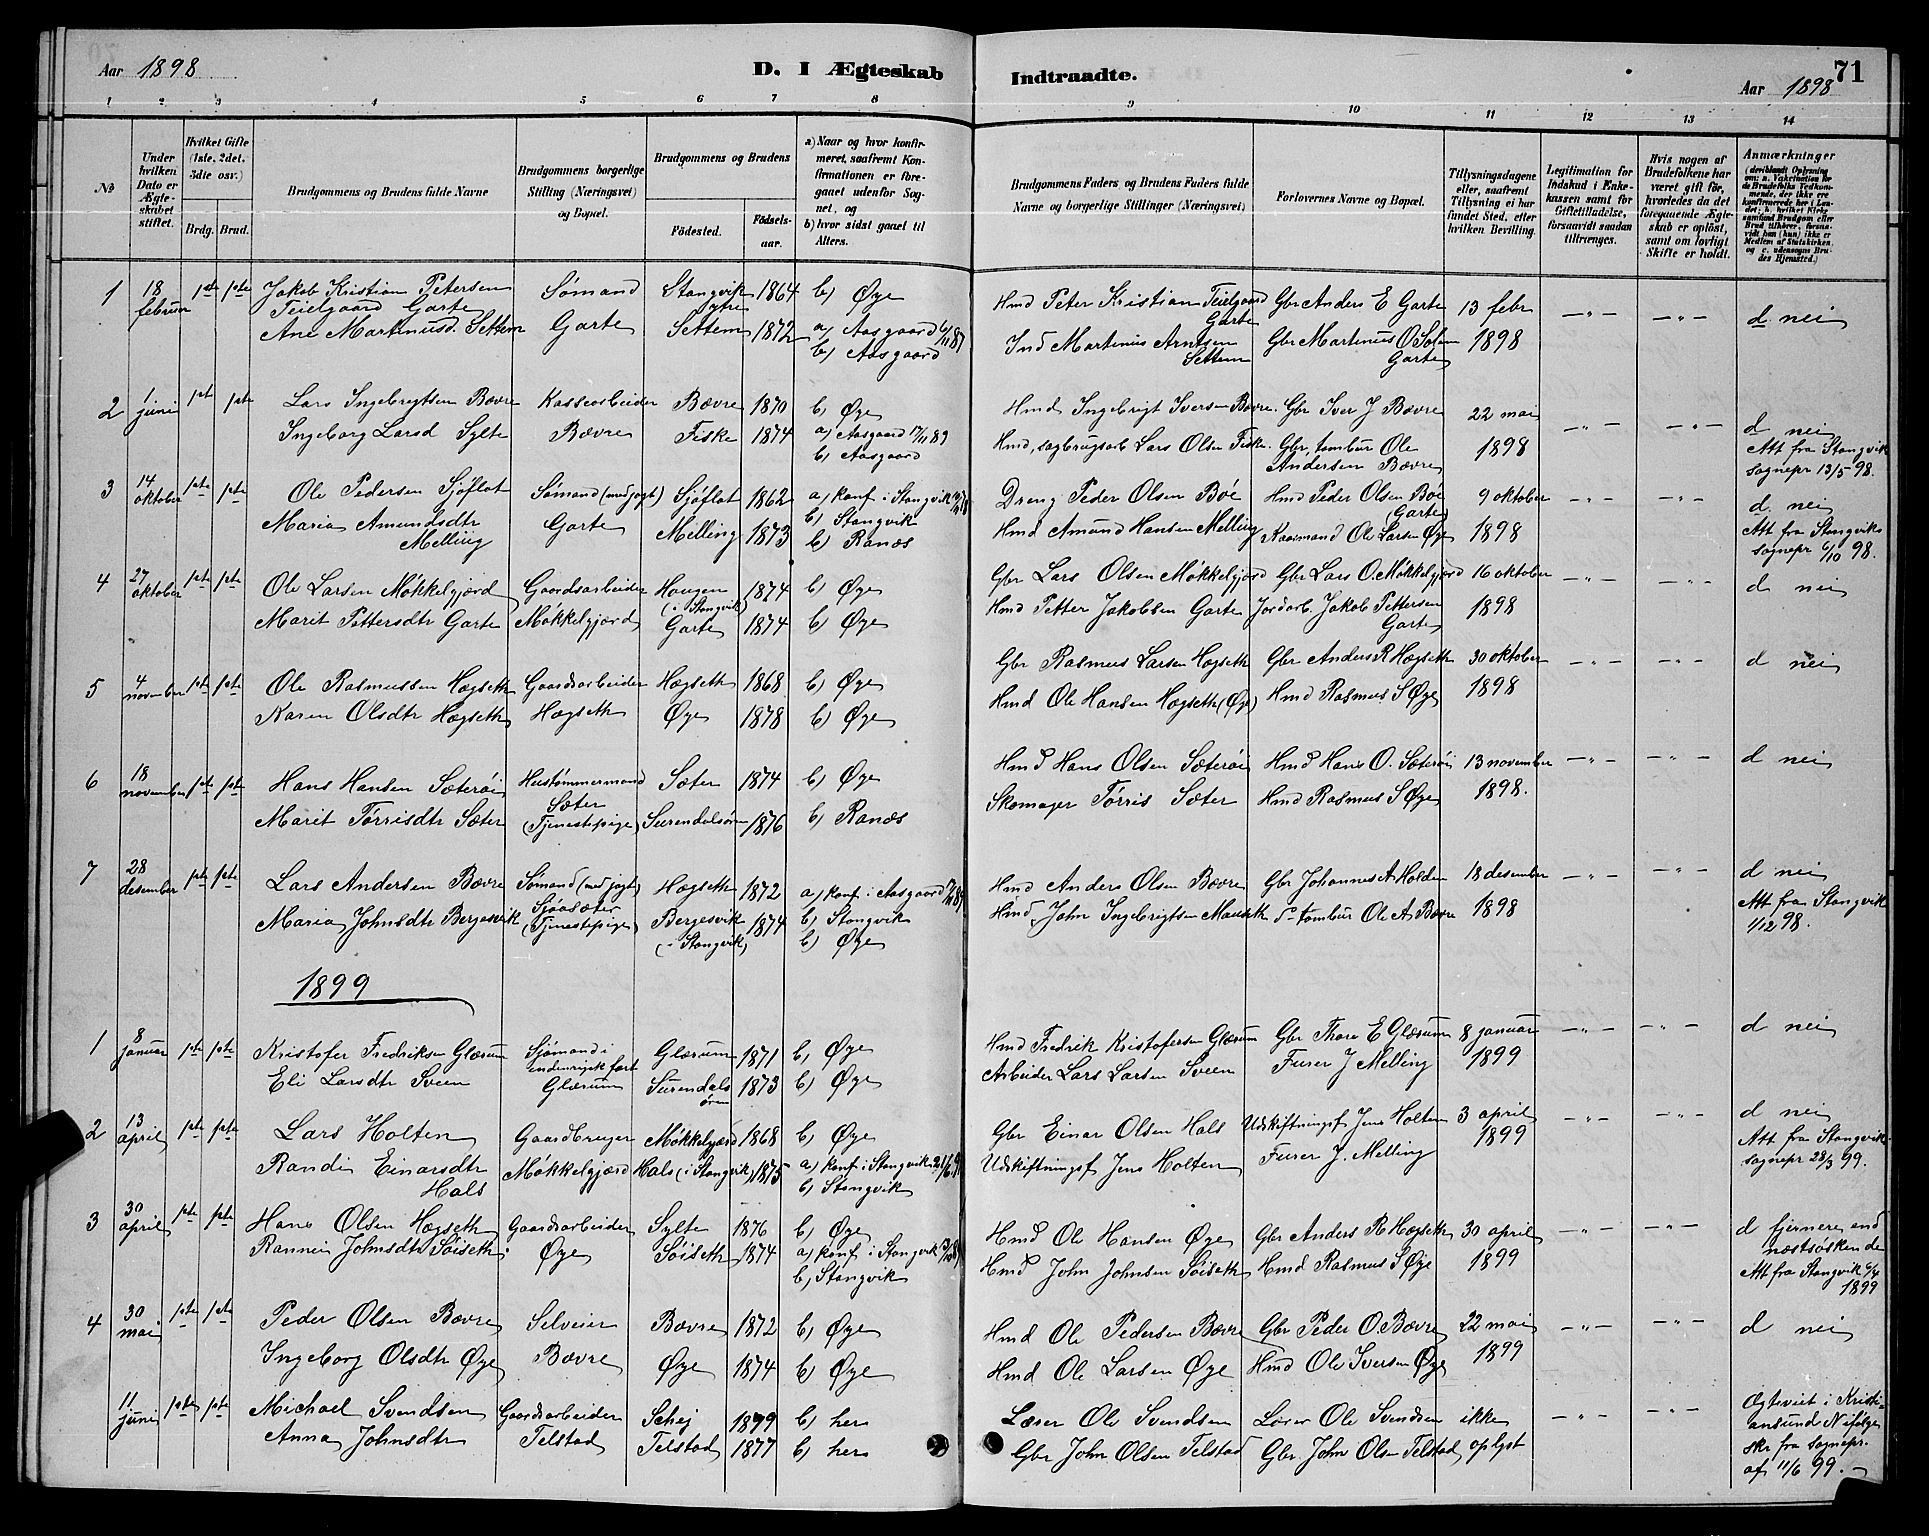 Aar 1898
D. I Ægteskab
1 2 3 4 5 6 7 8
No
Under hvilken Dato er Ægteskabet stiftet.
Hvilket Gifte (1ste, 2det, 3die osv.)
Brdg. Brud.
Brudgommens og Brudens fulde Navne
Brudgommens borgerlige Stilling (Næringsvei) og Bopæl.
Brudgommens og Brudens
Fødested. Fødsels-aar.
a) Naar og hvor konfirmeret, saafremt Konfirmationen er foregaaet udenfor Sognet, og
b) hvor sidst gaaet til Alters.
1 18 februar 1ste 1ste Jakob Kristian Petersen Sømand Stangvik 1864 b) Øye
Teielgaard Garte ytre
Ane Martinusd. Settem Garte Settem 1872 a) Aasgaard
b) Aasgaard
2 1 juni 1ste 1ste Lars Ingebrigtsen Bævre Kassearbeider Bævre 1870 b) Øye
Ingeborg Larsd Sylte Bævre Fiske 1874 a) Aasgaard 17/11 89
b) Aasgaard
3 14 oktober 1ste 1ste Ole Pedersen Sjøflot Sømand (med jagt) Sjøflot 1862 a) konf i Stangvik
b) Stangvik
Maria Amundsdtr Garte Melling 1873 b) Ranæs
Melling
4 27 oktober 1ste 1ste Ole Larsen Møkkelgjærd Gaardsarbeider Haugen 1874 b) Øye
(i Stangvik)
Marit Pettersdtr Garte Møkkelgjærd Garte 1874 b) Øye
5 4 november 1ste 1ste Ole Rasmussen Hægseth Gaardsarbeider Hægseth 1868 b) Øye
Karen Olsdtr Hægseth Hægseth Øye 1878 b) Øye
6 18 november 1ste 1ste Hans Hansen Sæterøi Hustømmermand Sæter 1874 b) Øye
Sæter
Marit Tørrisdtr Sæter (Tjenestepige) Surendalsøren 1876 b) Ranæs
7 28 desember 1ste 1ste Lars Andersen Bævre Sømand (med jagt) Hægseth 1872 a) konf. i Aasgaard
Sjøasæter
Maria Johnsdtr Bergesvik (Tjenestepige) Bergesvik 1874 b) Stangvik
(i Stangvik) b) Øye
1899
1 8 januar 1ste 1ste Kristofer Fredriksen Glærum Sjømand i Glærum 1871 b) Øye
indenrigsk fart
Eli Larsdtr Sveen Glærum Surendalsøren 1873 b) Øye
2 13 april 1ste 1ste Lars Holten Gaardbruger Møkkelgjærd 1868 b) Øye
Randi Einarsdtr Møkkelgjærd Hals (i Stangvik) 1875 a) konf i Stangvik
Hals b) Stangvik
3 30 april 1ste 1ste Hans Olsen Hægseth Gaardsarbeider Sylte 1876 b) Øye
Rannei Johnsdtr Søiseth Øye Søiseth 1874 a) konf. i Stangvik
b) Stangvik
4 30 mai 1ste 1ste Peder Olsen Bævre Selveier Bævre 1872 b) Øye
Ingeborg Olsdtr Øye Bævre Øye 1874 b) Øye
11 juni 1ste 1ste Michael Svendsen Gaardsarbeider Schej 1879 b) her
Anna Johnsdtr Telstad Telstad 1877 b) her
Indtraadte.
71
Aar 1898
9 10 11 12 13 14
Brudgommens Faders og Brudens Faders fulde Navne og borgerlige Stillinger (Næringsvei)
Forlovernes Navne og Bopæl.
Tillysningsdagene eller, saafremt Tillysning ei har fundet Sted, efter hvilken Bevilling.
Legitimation for Indskud i Enkekassen samt for Giftetilladelse, forsaavidt saadan tiltrænges.
Hvis nogen af Brudefolkene har været gift før, hvorledes da det foregaaende Ægteskab er opløst, samt om lovligt Skifte er holdt.
Anmærkninger
(deriblandt Oplysning om: a. Vakcination for de Brudefolks Vedkommende, der ikke ere konfirmerede her i Landet; b. hvilket Kirkesamfund Brudgom eller Brud tilhører, forsaavidt han (hun) ikke er Medlem af Statskirken, og c. udensogns Brudes Hjemsted.)
Hmd Peter Kristian Teielgaard Gbr Anders E Garte 13 febr — " — — " — d. nei
Garte
Ind Martinus Arntsen Gbr Martinus O Solem 1898
Settem Garte
Hmd Ingebrigt Iversen Bævre. Gbr Iver J Bævre 22 mai — " — — " — d nei
Hmd, sagbrugsarb Lars Olsen Fiske. Gbr, tambur Ole 1898 Att fra Stangvik
Andersen Bævre sognepr 13/5 98.
Dreng Peder Olsen Bøe Hmd Peder Olsen Bøe 9 oktober — " — — " — d. nei
(Garte)
Hmd Amund Hansen Melling Kaarmand Ole Larsen Øye 1898 Att fra Stangviks
sognepr 6/10 98.
Gbr Lars Olsen Møkkelgjærd Gbr Lars O. Møkkelgjærd 16 oktober — " — — " — d nei
Hmd Petter Jakobsen Garte Jordarb. Jakob Pettersen 1898
Garte
Gbr Rasmus Larsen Hægseth Gbr Anders R Hægseth 30 oktober — " — — " — d nei
Hmd Ole Hansen Hægseth (Øye) Hmd Rasmus S Øye 1898
Hmd Hans Olsen Sæterøi Hmd Hans O. Sæterøi 13 november — " — — " — d nei
Skomager Tørris Sæter Hmd Rasmus S Øye 1898.
Hmd Anders Olsen Bævre Gbr Johannes A Holden 18 desember — " — — " — d nei
Hmd John Ingebrigtsen Mauseth d- tambur Ole A Bævre 1898 Att fra Stangvik
1/12 98.
Hmd Fredrik Kristofersen Glærum Gbr Thore E Glærum 8 januar — " — — " — d nei
Arbeider Lars Larsen Sveen Furer J Melling 1899
Gbr Einar Olsen Hals Udskiftningsf Jens Holten 3 april — " — — " — d nei
Udskiftningsf Jens Holten Furer J. Melling 1899 Att fra Stangvik
sognepr 28/3 99.
Hmd Ole Hansen Øye Gbr Anders R Hægseth 30 april — " — — " — d fjernere end
næstsøskende
Hmd John Johnsen Søiseth Hmd Rasmus S Øye 1899 Att fra Stangvik
1899
Hmd Ole Pedersen Bævre Gbr Peder O. Bævre 22 mai — " — — " — d nei
Hmd Ole Larsen Øye Hmd Ole Iversen Øye 1899
Læser Ole Svendsen Lærer Ole Svendsen ikke — " — — " — Ægteviet i Kristiansund N ifølge
Gbr John Olsen Telstad Gbr John Olsen Telstad oplyst skr fra sognepr.
af 11/6 99.